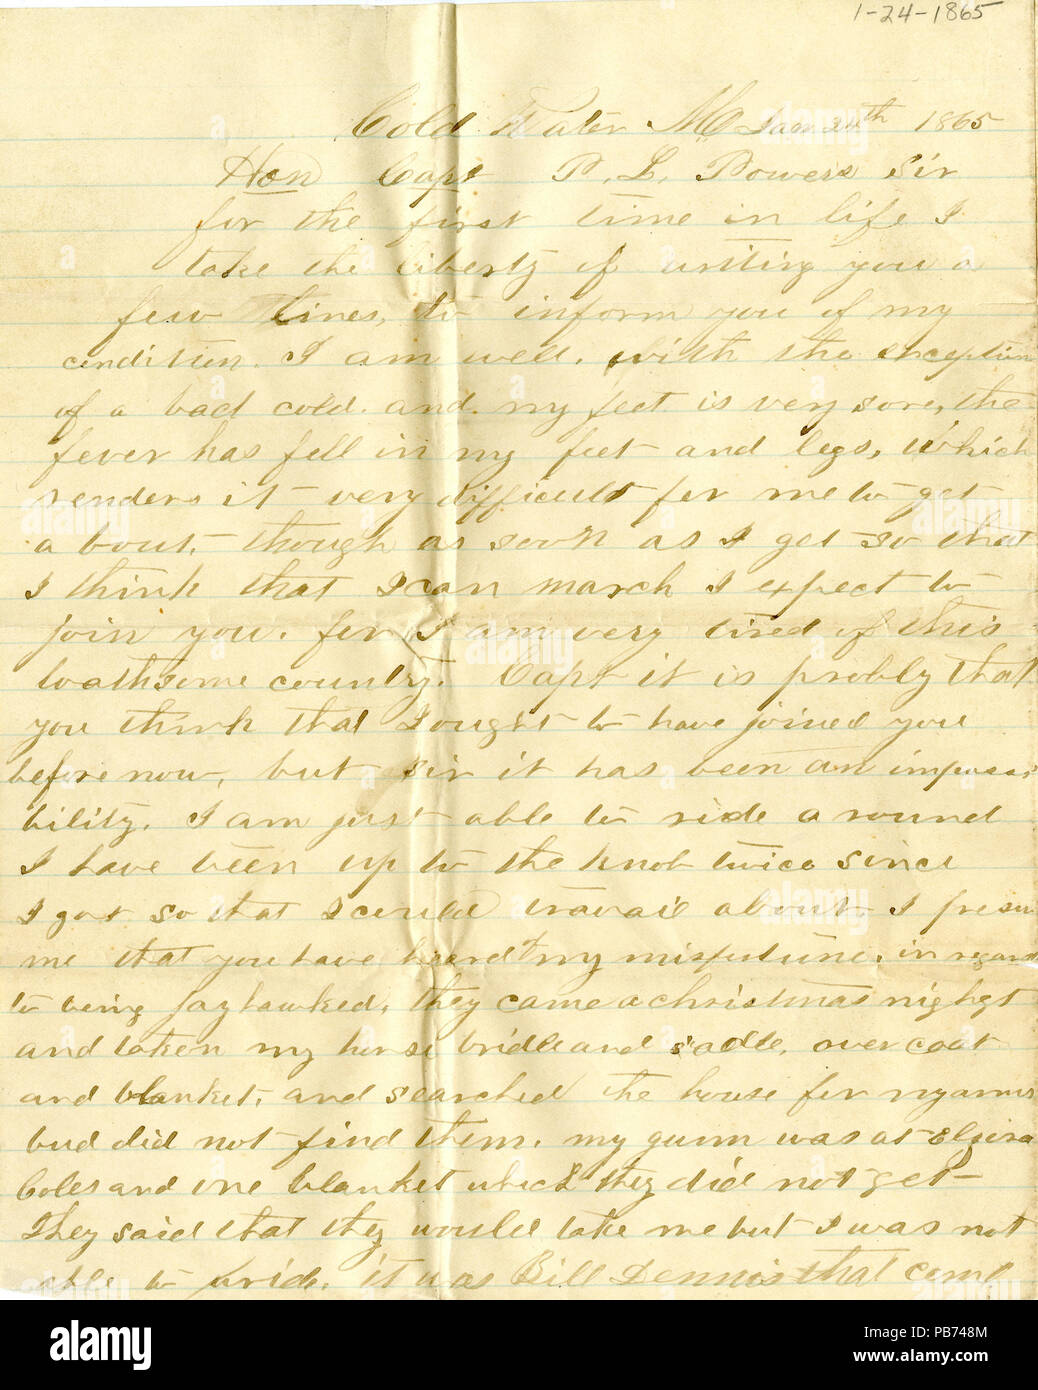 1-24-1865
Cold Water Mo Jan 24th 1865
Hon Capt P. L. Powers Sir
for the first time in life I
take the liberty of writing you a
few lines, to inform you of my
condition. I am well. with the exception
of a bad cold. and my feet is very sore, the
fever has fell in my feet and legs, which
renders it very difficult for me to get
a bout, though as soon as I get so that
I think that I can march I expect to
join you. for I am very tired of this
loathsome country. Capt it is probly that
you think that I ought to have joined you
before now, but sir it has been an imposs
bility. I am just able to ride a round
I have been up to the knob twice since
I got so that I could travail about I presu
me that you have heard my misfortune. in regard
to being jayhawked, they came a christmas night
and taken my horse bridle and sadle, over coat
and blanket, and searched the house for my arms
bud did not find them. my gunn was at
Coles and one blanket which they did not get
They said that they would take me but I was not
able to ride. it was Bill Dennis that come
alamy
PB748M
www.alamy.com